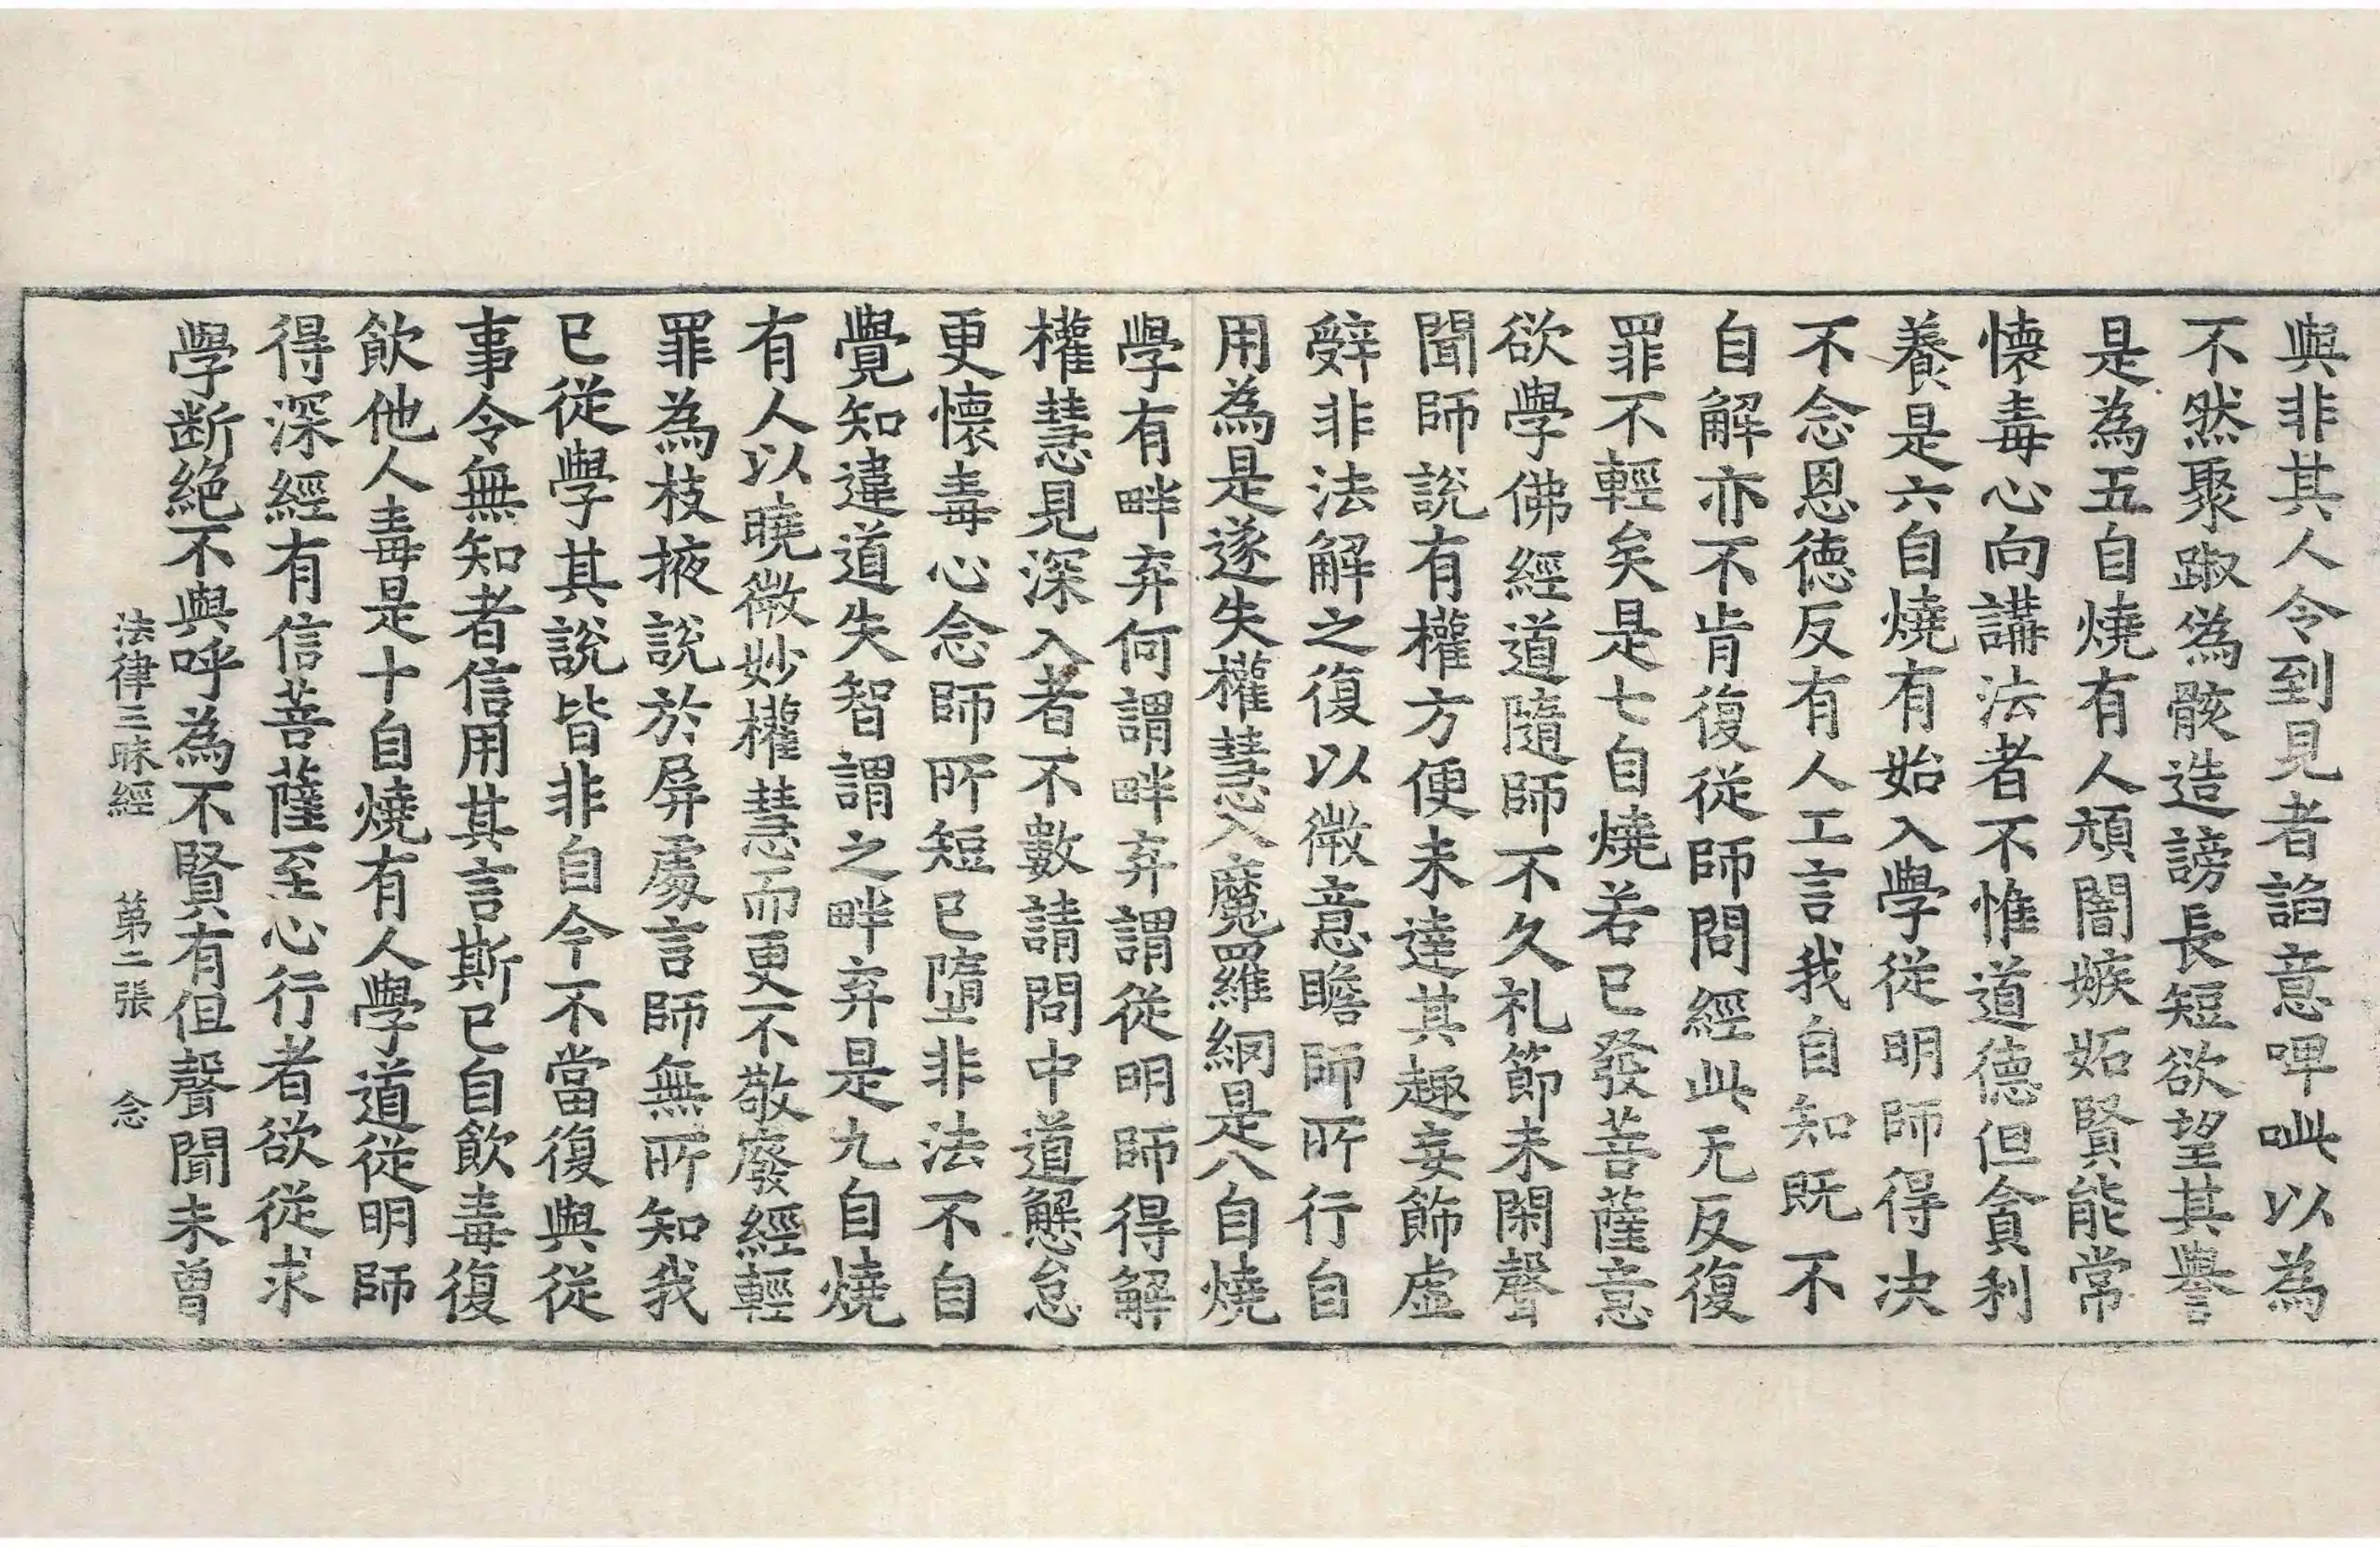 與非其人令到見者諂意呰呰以為
不然聚踧為骸造謗長短欲望其譽
是為五自燒有人頑闇嫉妬賢能常
懷毒心向講法者不惟道德但貪利
養是六自燒有始入學從明師得决
不念恩德反有人工言我自知既不
自解亦不肯復從師問經此无反復
罪不輕矣是七自燒若已發菩薩意
欲學佛經道隨師不久礼節未閑聲
聞師說有權方便未達其趣妄飾虛
辤非法解之復以微意瞻師所行自
用為是遂失權慧入魔羅網是八自燒
學有畔弃何謂畔弃謂從明師得解
權慧見深入者不數請問中道懈怠
更懷毒心念師所短已墮非法不自
覺知違道失智謂之畔弃是九自燒
有人以曉微妙權慧而更不敬廢經輕
罪為枝掖說於屏處言師無所知我
已從學其說皆非自今不當復與從
事令無知者信用其言斯已自飲毒復
飲他人毒是十自燒有人學道從明師
得深經有信菩薩至心行者欲從求
學断絶不與呼為不賢有但聲聞未曾
法律三昧經 第二張 念